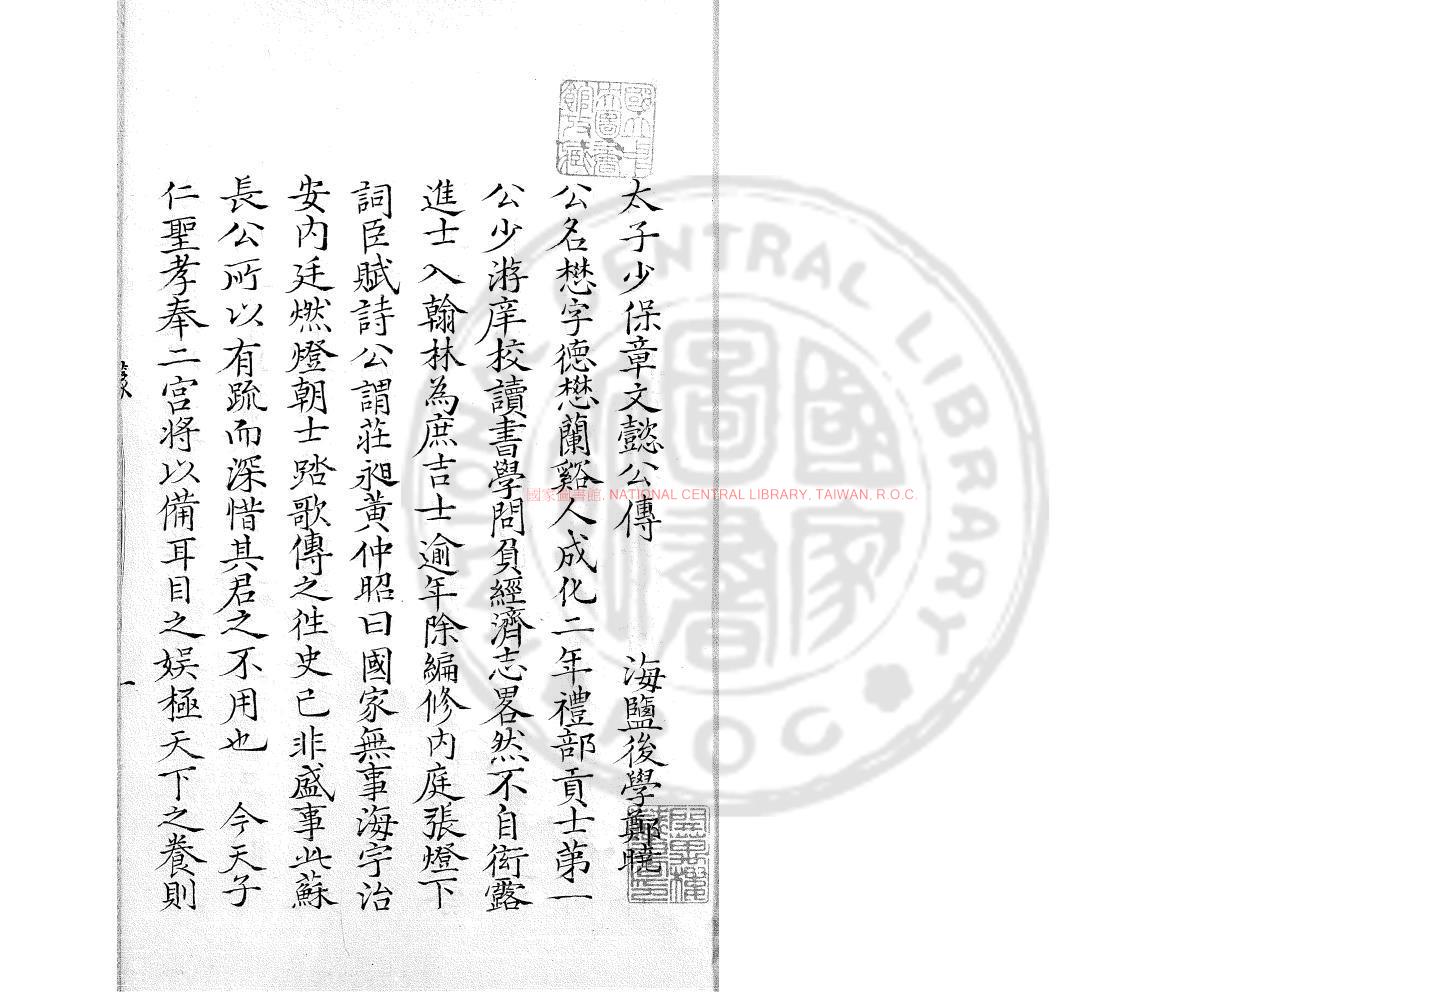 太子少保章文懿公傳　海鹽後學鄭曉
公名懋字德懋蘭谿人成化二年禮部貢士第一
公少游庠校讀書學問負經濟志畧然不自衒露
進士入翰林為庶吉士逾年除編修內庭張燈下
詞臣賦詩公謂莊昶黃仲昭曰國家無事海宇治
安內廷燃燈朝士踏歌傳之徃史已非盛事此蘇
長公所以有疏而深惜其君之不用也　今天子
仁聖孝奉二宮將以備耳目之娛極天下之養則
一
國家圖書館, NATIONAL CENTRAL LIBRARY, TAIWAN, R.O.C.
NATIONAL CENTRAL LIBRARY
R.O.C.
國家圖書